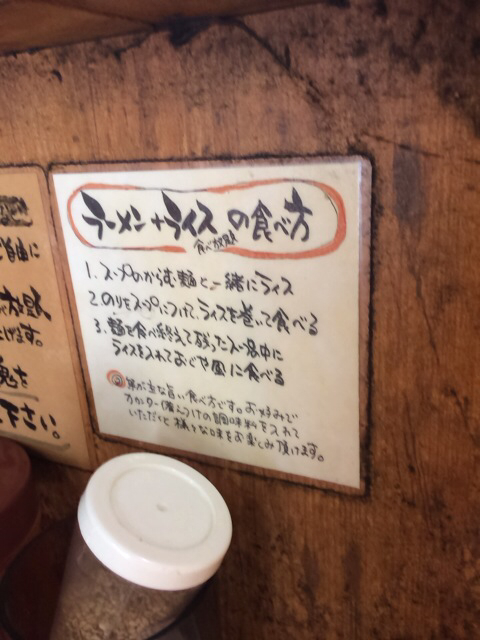 ラーメン+ライスの食べ方
食べ放題
1.スープのからむ麺と一緒にライス
2.のりをスープにつけてライスを巻いて食べる
3.麺を食べ終えて残ったスープの中に
ライスを入れておじや風に食べる
が主な旨い食べ方です。お好みで
カウンター備えつけの調味料を入れて
いただくと様々な味をお楽しみ頂けます。
ご自由に
放題
げます。
を
下さい。